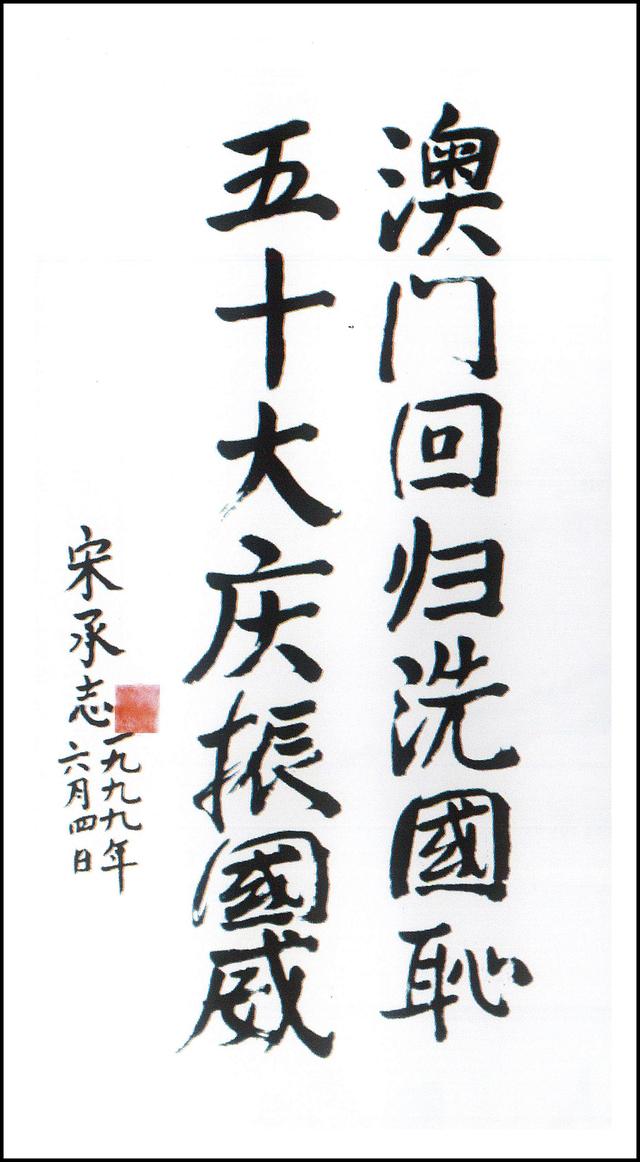 澳门回归洗國恥
五十大庆振國威
宋承志
一九九九年
六月四日